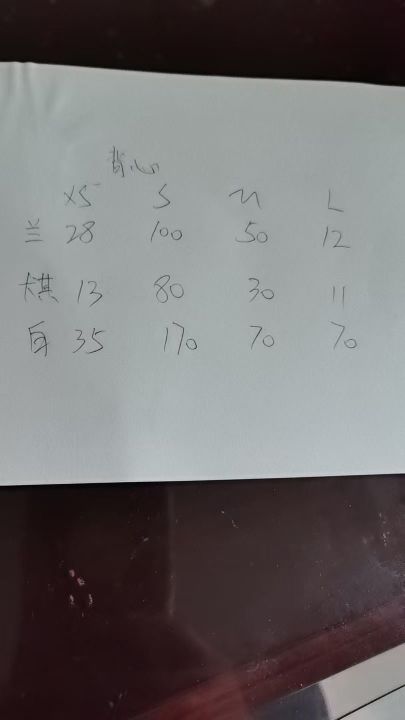 背心
XS S M L
兰 28 100 50 12
棋 13 80 30 11
白 35 170 70 70